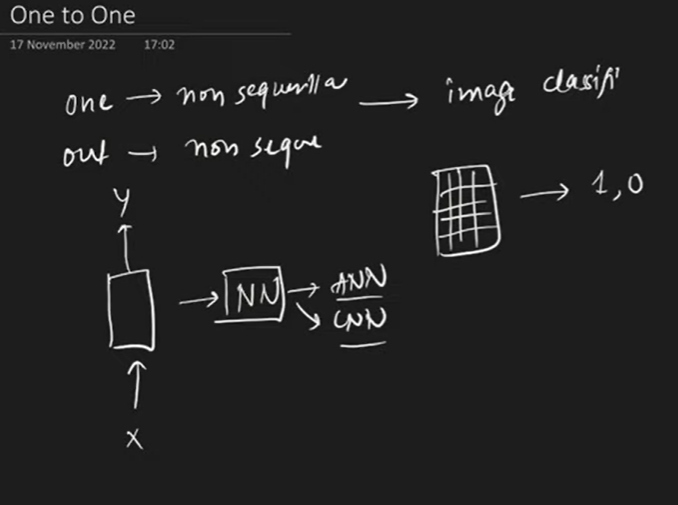 One to One
17 November 2022 17:02
one → non sequentia → image classifi
out → non seque
Y
→ 1,0
→ NN → ANN
→ CNN
X